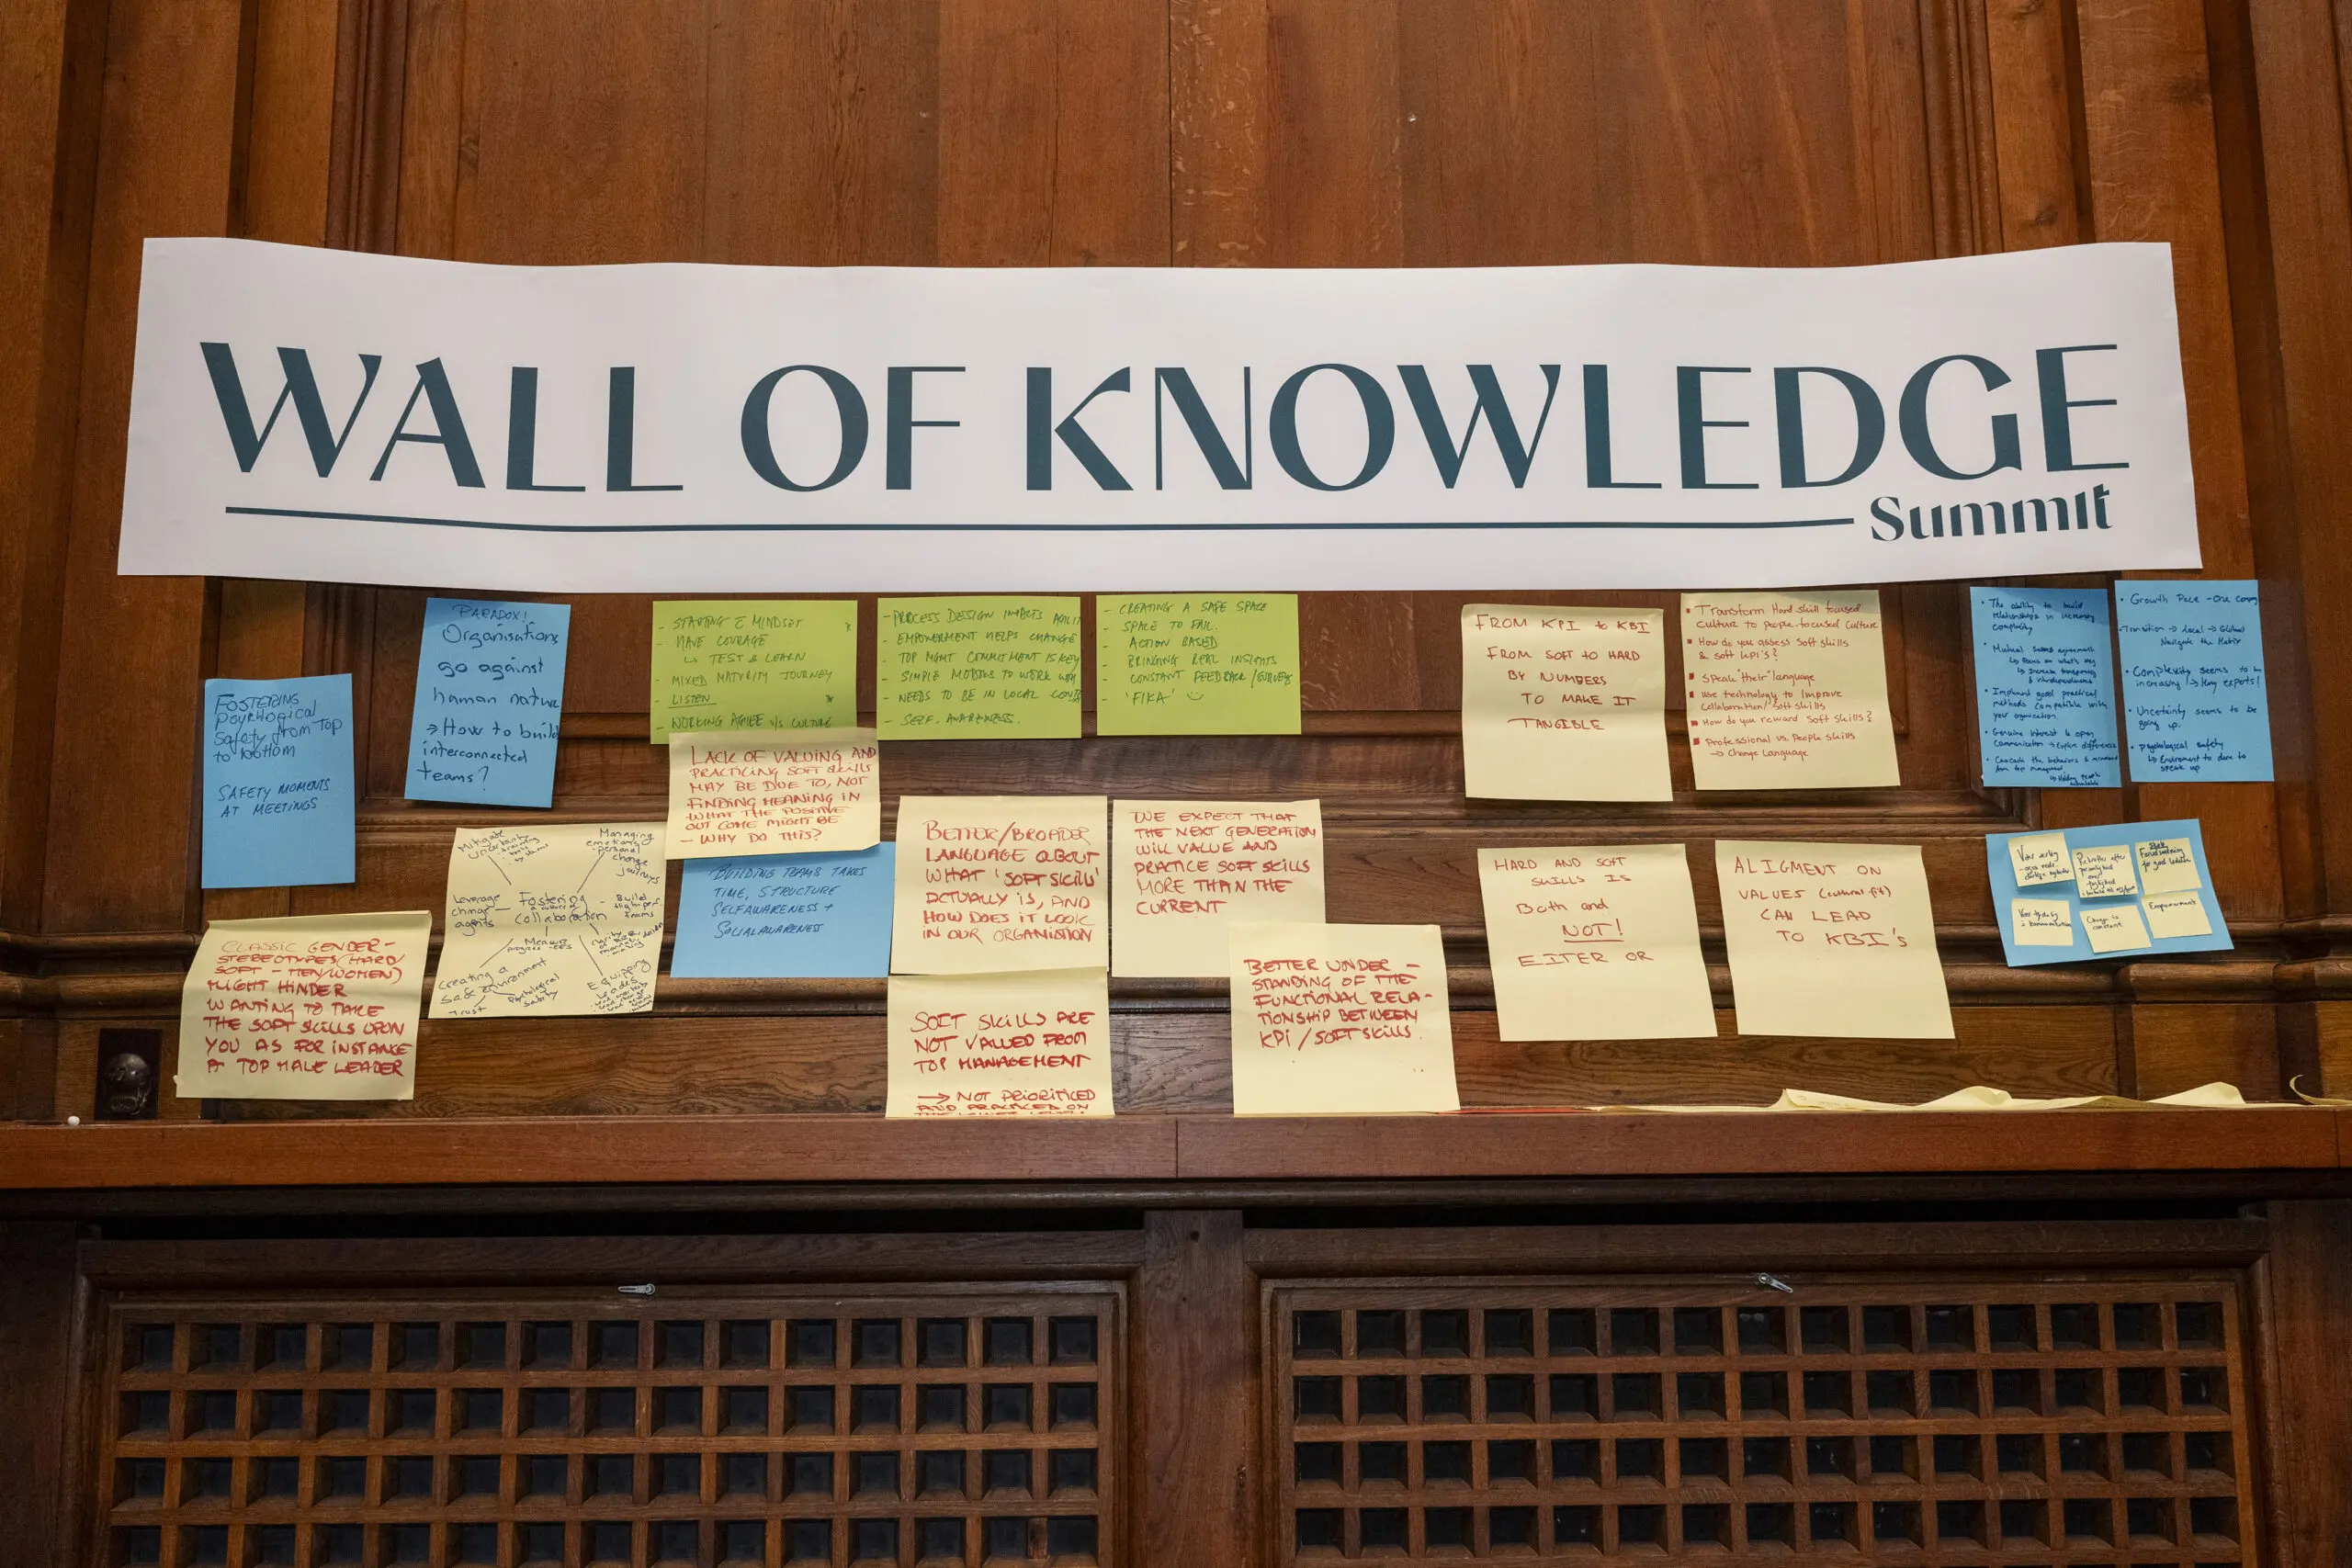 WALL OF KNOWLEDGE
Summit
FOSTERING
psychological
Safety from Top
to bottom
SAFETY MOMENTS
AT MEETINGS
PARADOX!
Organisations
go against
human nature
→ How to build
interconnected
teams?
- STARTING MINDSET
- HAVE COURAGE
↳ TEST & LEARN
- MIXED MATURITY JOURNEY
- LISTEN
- WORKING AGILE V/S CULTURE
- PROCESS DESIGN IMPACTS
- EMPOWERMENT HELPS CHANGE
- TOP MGMT COMMITMENT IS KEY
- SIMPLE MODELS TO WORK
- NEEDS TO BE IN LOCAL
- SELF-AWARENESS.
- CREATING A SAFE SPACE
- SPACE TO FAIL.
- ACTION BASED
- BRINGING REAL INSIGHTS
- CONSTANT FEEDBACK/SURVEY
- 'FIKA'
FROM KPI to KBI
FROM SOFT TO HARD
BY NUMBERS
TO MAKE IT
TANGIBLE
Transform Hard skill focused
culture to people-focused culture
How do you assess Soft skills
& soft KPI's?
Speak "their" language
Use technology to improve
Collaboration/Soft skills
How do you reward Soft Skills?
Professional vs. People skills
→ Change Language
• The ability to build
relationships in increasing
complexity
• Mutual agreement
↳ Focus on what's
↳ Increase transparency
• Implement good practical
methods compatible with
your organisation.
• Genuine interest & open
communication → Explore differences
• Cascade the behaviors &
from top management
↳ Holding people
accountable
• Growth Pace - One
• Transition → Local → Global
Navigate the Matrix
• Complexity seems to be
increasing → Many experts!
• Uncertainty seems to be
going up.
• Psychological safety
↳ Environment to dare to
speak up
LACK OF VALUING AND
PRACTICING SOFT SKILLS
MAY BE DUE TO, NOT
FINDING MEANING IN
WHAT THE POSITIVE
OUT COME MIGHT BE
- WHY DO THIS?
Mitigate
uncertainty
Managing
emotions
personal
change
journeys
Leverage
change
agents
Fostering
a culture of
collaboration
Build
high perf.
teams
Measure
progress
creating a
safe environment
trust
Psychological
Safety
Equipping
Leaders
BUILDING TEAMS TAKES
TIME, STRUCTURE
SELFAWARENESS +
SOCIALAWARENESS
BETTER/BROADER
LANGUAGE ABOUT
WHAT 'SOFT SKILLS'
ACTUALLY IS, AND
HOW DOES IT LOOK
IN OUR ORGANISTION
WE EXPECT THAT
THE NEXT GENERATION
WILL VALUE AND
PRACTICE SOFT SKILLS
MORE THAN THE
CURRENT
HARD AND SOFT
SKILLS IS
Both and
NOT!
EITER OR
ALIGMENT ON
VALUES (cultural fit)
CAN LEAD
TO KBI's
Empowerment
Change is
constant
CLASSIC GENDER-
STEREOTYPES (HARD/
SOFT - MEN/WOMEN)
MIGHT HINDER
WANTING TO TAKE
THE SOFT SKILLS UPON
YOU AS FOR INSTANCE
A TOP MALE LEADER
SOFT SKILLS ARE
NOT VALUED FROM
TOP MANAGEMENT
→ NOT PRIORITICED
AND PRACTICED ON
BETTER UNDER-
STANDING OF THE
FUNCTIONAL RELA-
TIONSHIP BETWEEN
KPI / SOFT SKILLS.